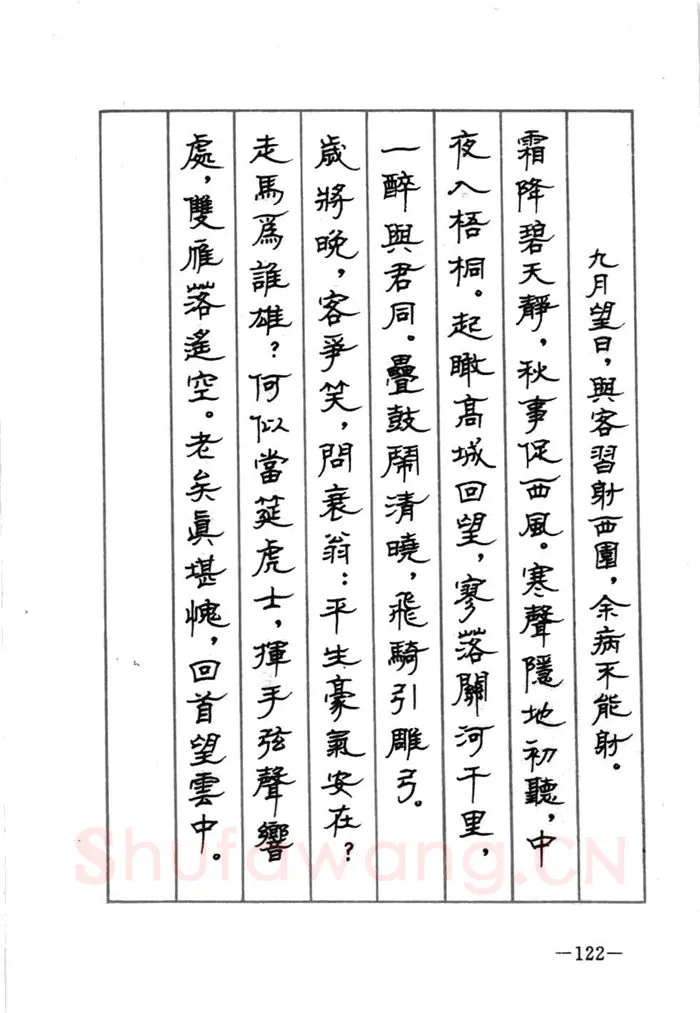 九月望日，與客習射西園，余病不能射。
霜降碧天靜，秋事促西風。寒聲隱地初聽，中
夜入梧桐。起瞰高城回望，寥落關河千里，
一醉與君同。疊鼓鬧清曉，飛騎引雕弓。
歲將晚，客爭笑，問衰翁：平生豪氣安在？
走馬爲誰雄？何似當筵虎士，揮手弦聲響
處，雙雁落遙空。老矣眞堪愧，回首望雲中。
Shufawang.CN
—122—